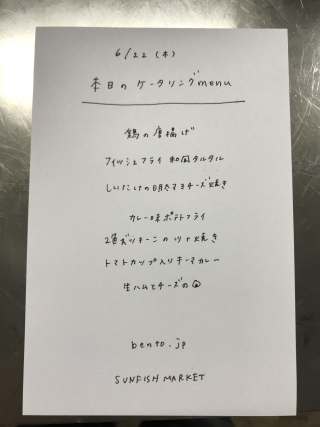 6/22 (木)
本日の ケータリングmenu
鶏の唐揚げ
フィッシュフライ 和風タルタル
しいたけの明太マヨチーズ焼き
カレー味ポテトフライ
2色ズッキーニのソテー焼き
トマトカップ入りキーマカレー
生ハムとチーズの
bento.jp
SUNFISH MARKET